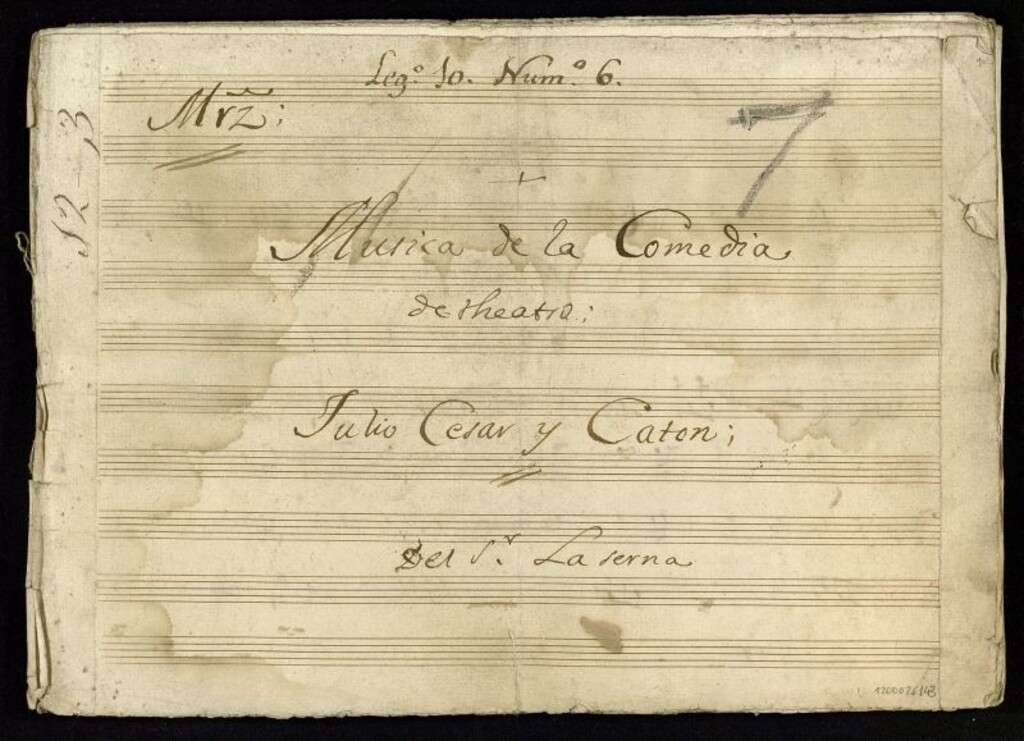 Leg.º 10. Num.º 6.
Mrz̃;
7
12-3
+
Musica de la Comedia
de theatro;
Julio Cesar y Caton;
Del S.r Laserna